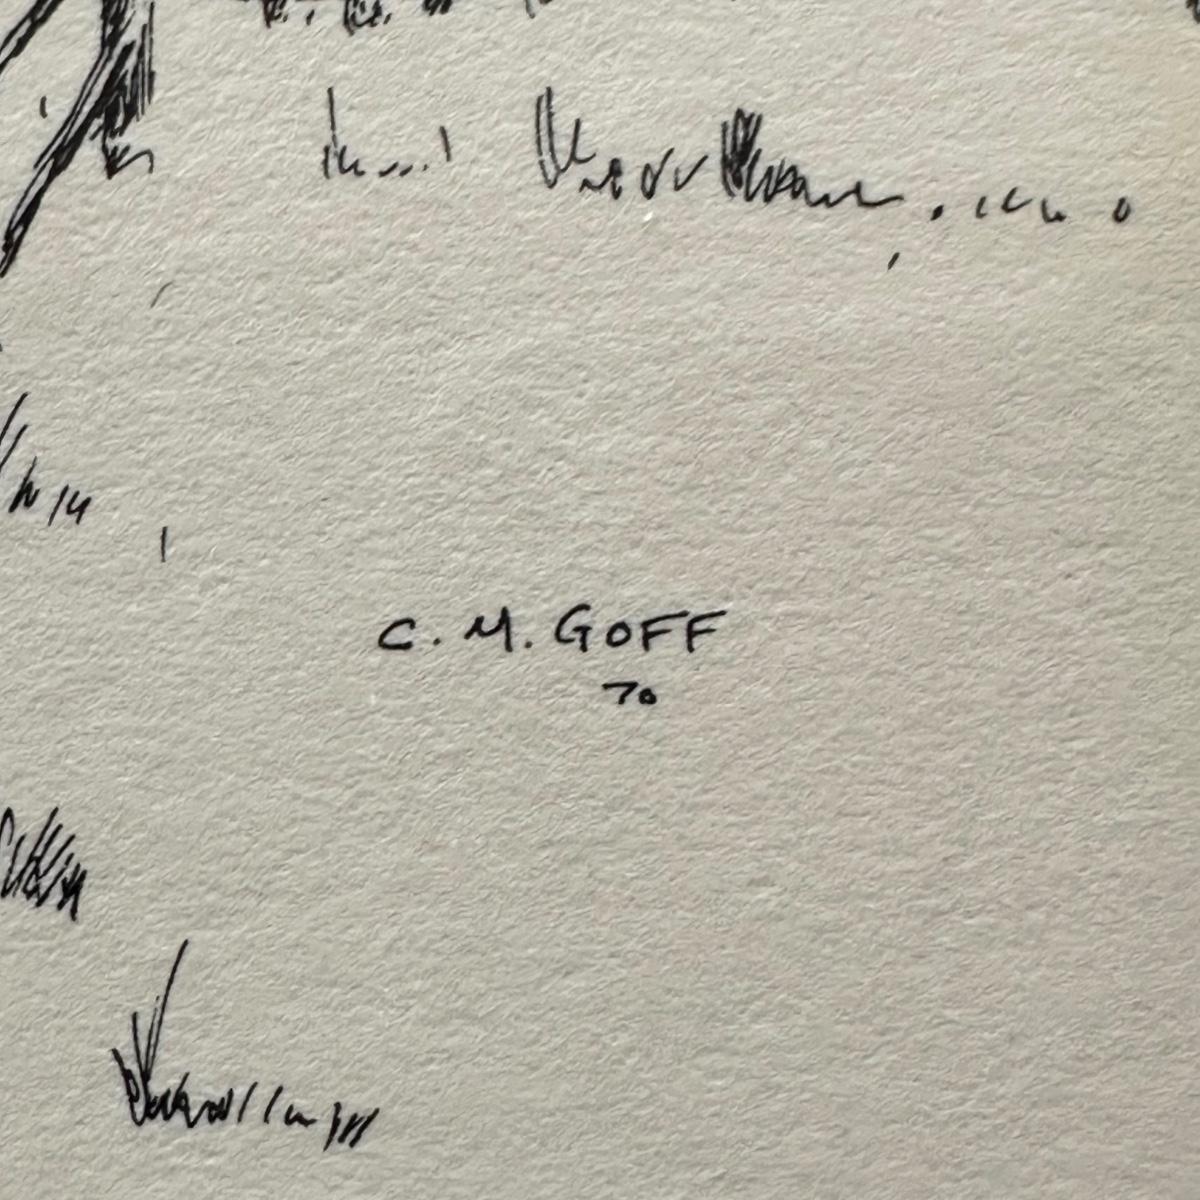 C. M. GOFF
70